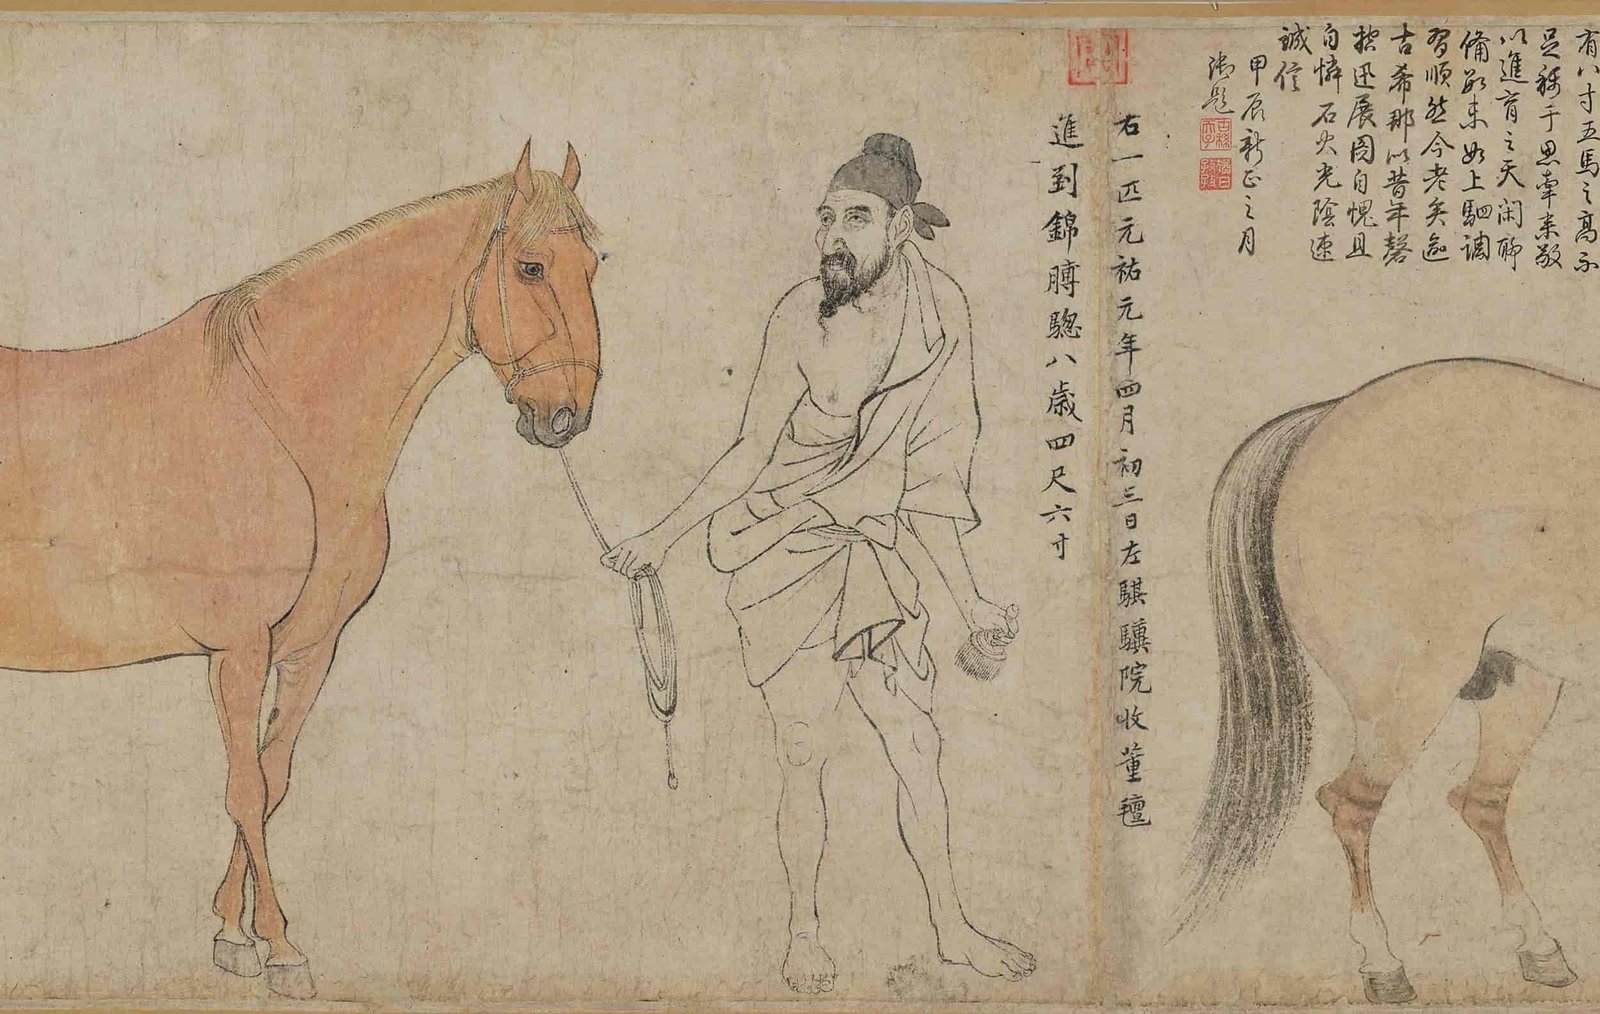 有八寸五馬之高不
足稱于思牽來敬
以進育之天閑聊
備數末如上駟調
習順然今老矣逾
古希那以昔年磬
控迅展圖自愧且
自憐石火光陰速
誠信
甲辰新正之月
御題
右一匹元祐元年四月初三日左騏驥院收董氊
進到錦膊驄八歲四尺六寸